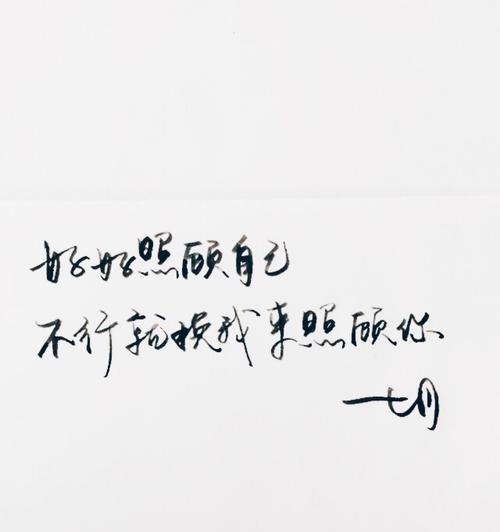 好好照顾自己
不行就换我来照顾你
七月